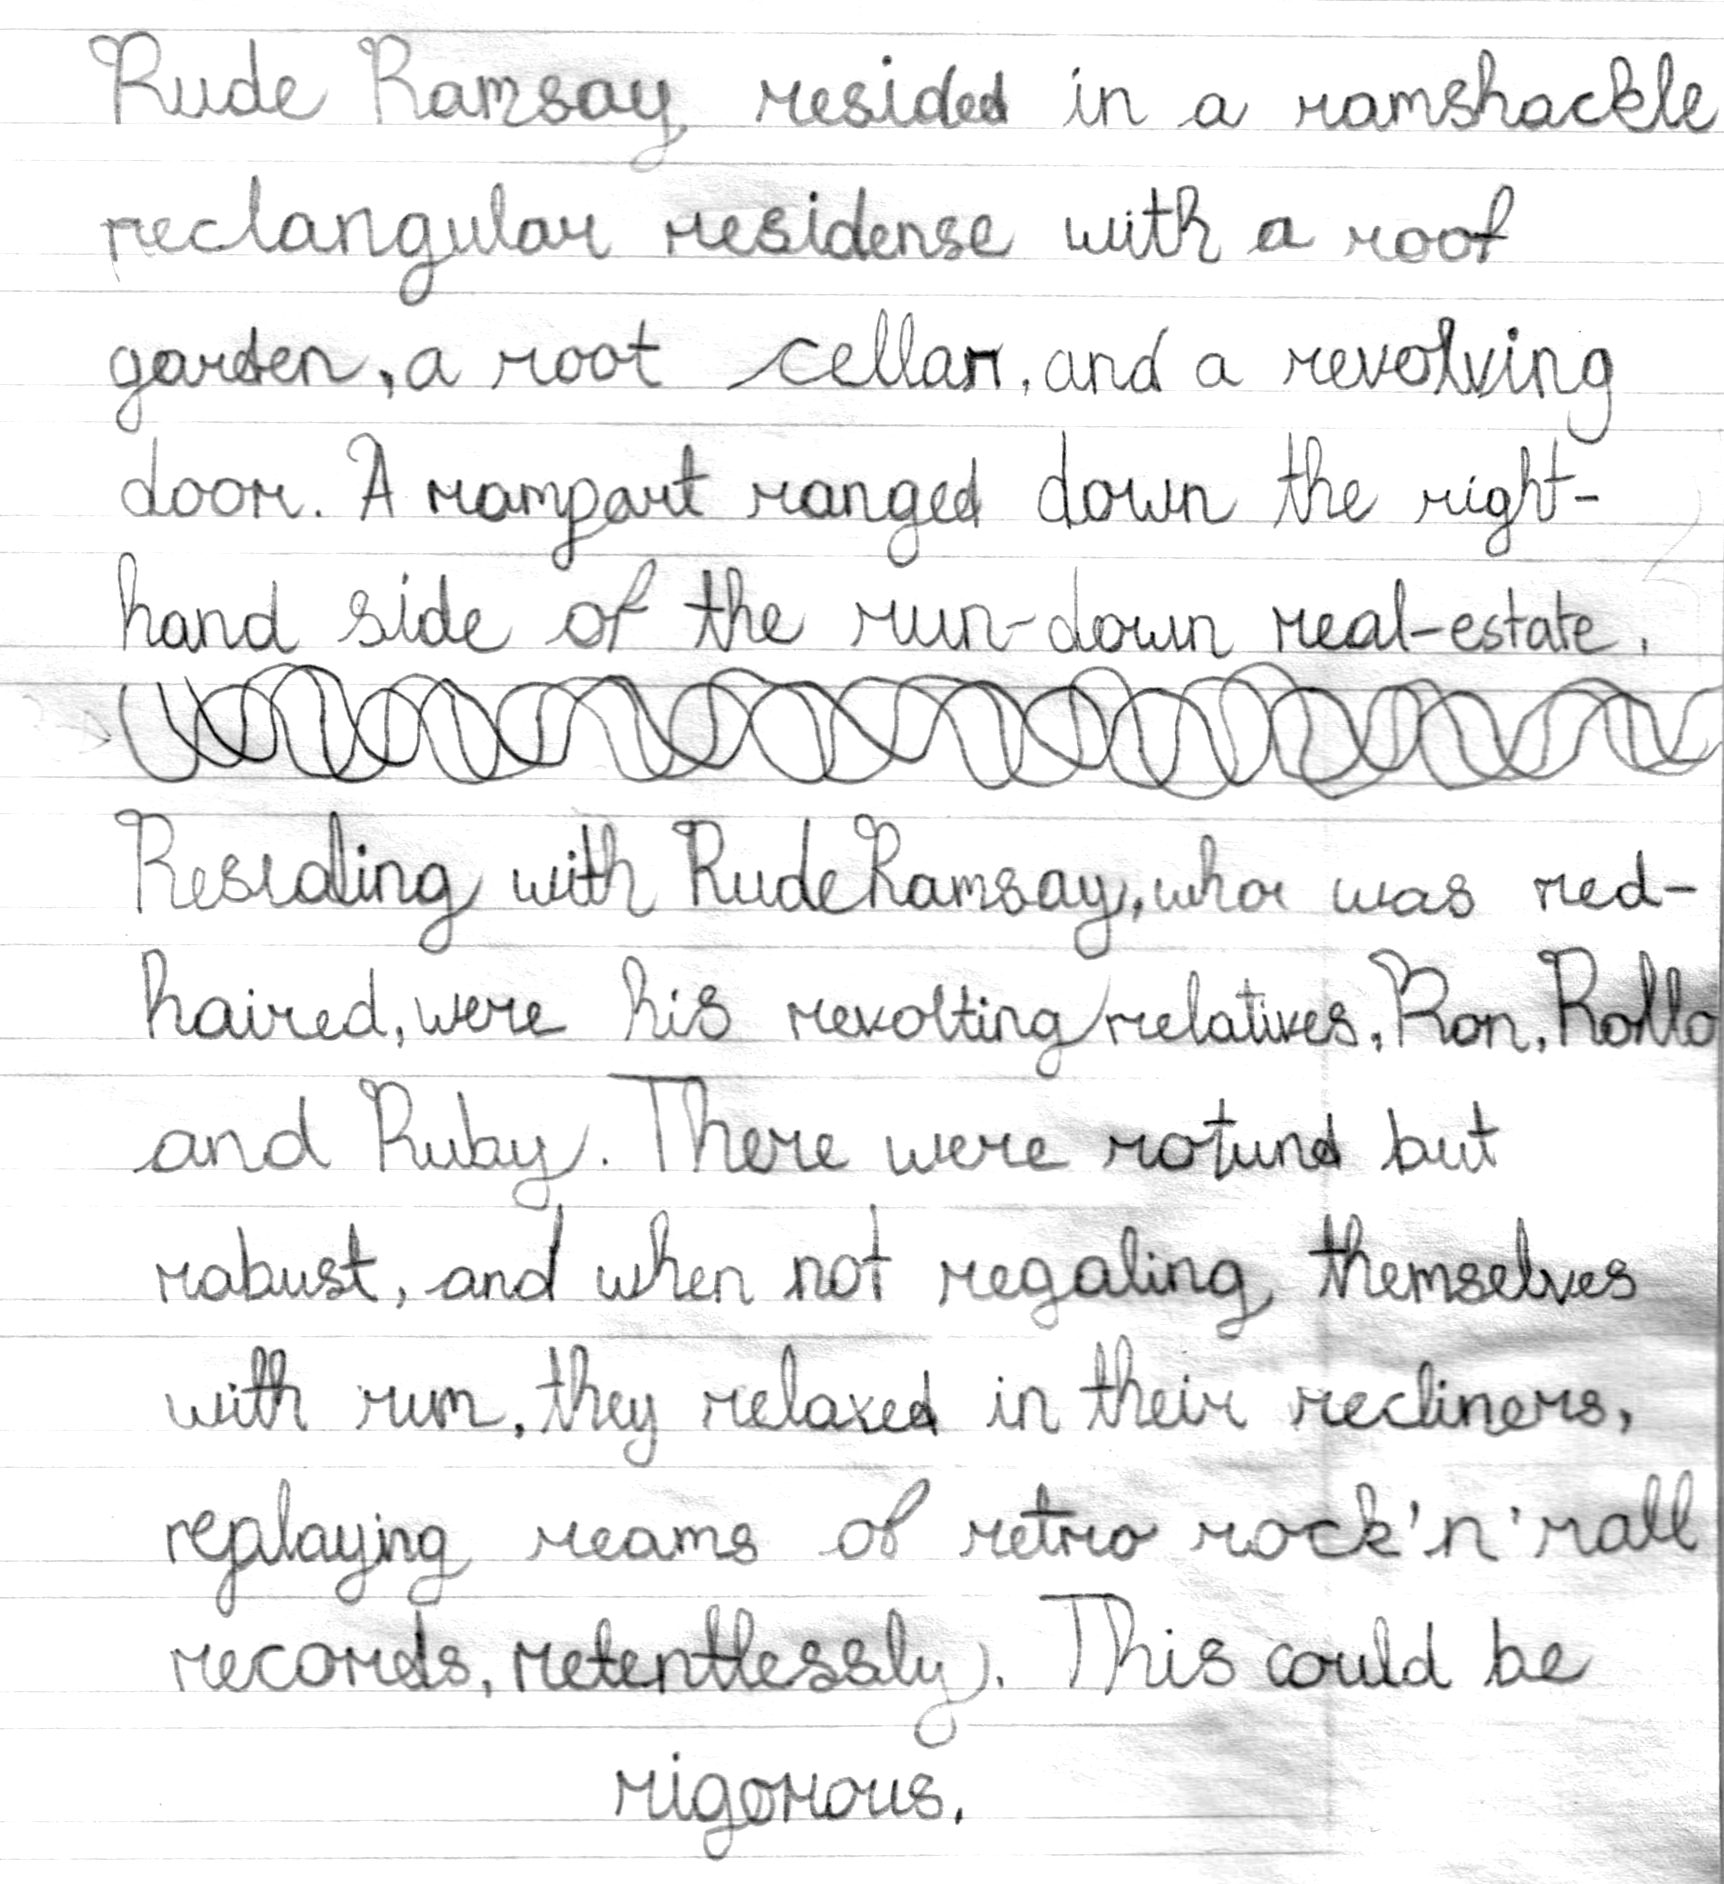 Rude Ramsay resided in a ramshackle
reclangular residense with a roof
garden, a root cellar, and a revolving
door. A rampart ranged down the right-
hand side of the run-down real-estate.
Residing with Rude Ramsay, who was red-
haired, were his revolting relatives, Ron, Rollo
and Ruby. There were rotund but
robust, and when not regaling themselves
with rum, they relaxed in their recliners,
replaying reams of retro rock'n'rall
records, retentlessly. This could be
rigorous.